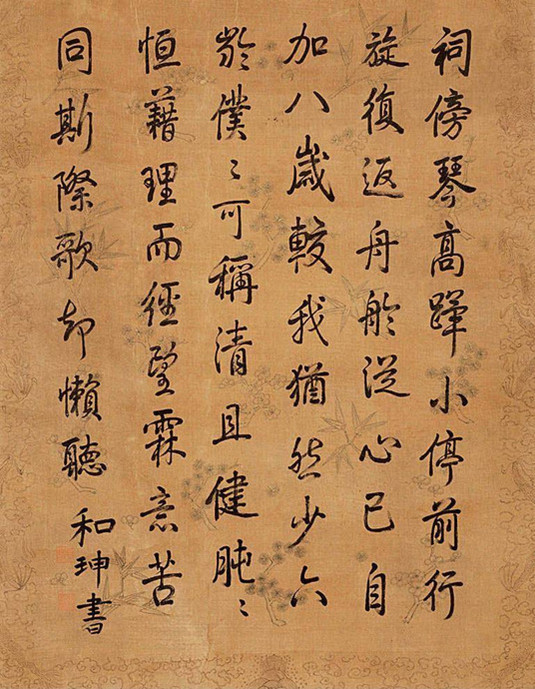 祠傍琴高蹕小停前行
旋復返舟舲从心已自
加八歲較我猶然少六
齡僕〻可稱清且健肫〻
恒藉理而經望霖意苦
同斯際歌却懶聽
和珅書